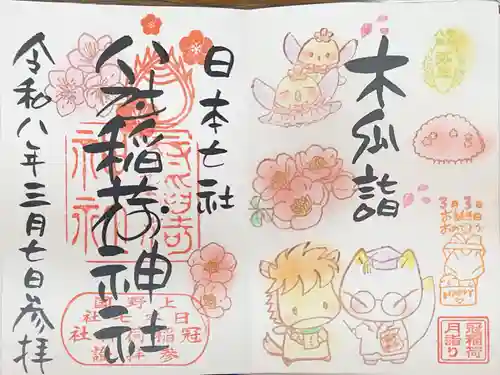 日本七社
冠稲荷神社
令和八年三月七日参拝
上野国
日本七社
冠稲荷神社
参拝証
木瓜詣
3月3日
お誕生日
おめでとう
HAPPY
冠稲荷
月詣り